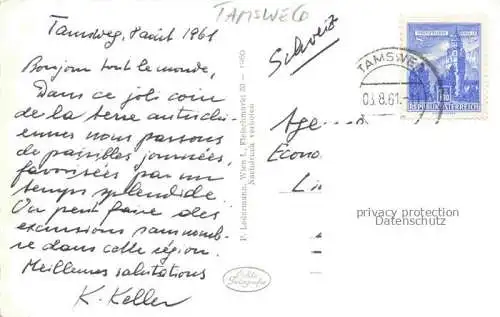 TAMSWEG
Tamsweg, 8 août 1961
Bonjour tout le monde,
Dans ce joli coin
de la terre autrichi-
enne nous passons
de paisibles journées,
favorisées par un
temps splendide.
On peut faire des
excursions sans nomb-
re dans cette région.
Meilleures salutations
K. Keller
P. Ledermann, Wien I., Fleischmarkt 20 - 1960
Nachdruck verboten
Echte
Fotografie
Schweiz
TAMSWEG
.8.61
REPUBLIK ÖSTERREICH
Age
Econo
L
privacy protection
Datenschutz